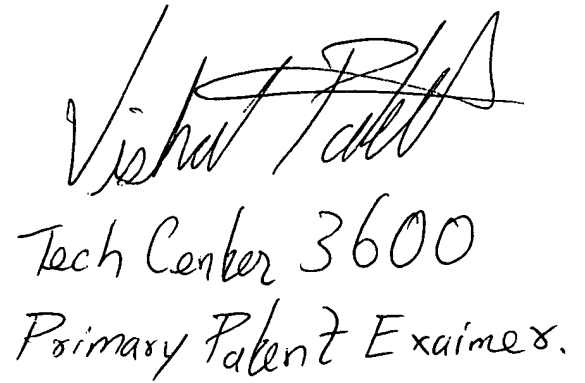 Vishal Patel
Tech Center 3600
Primary Patent Exaimer.